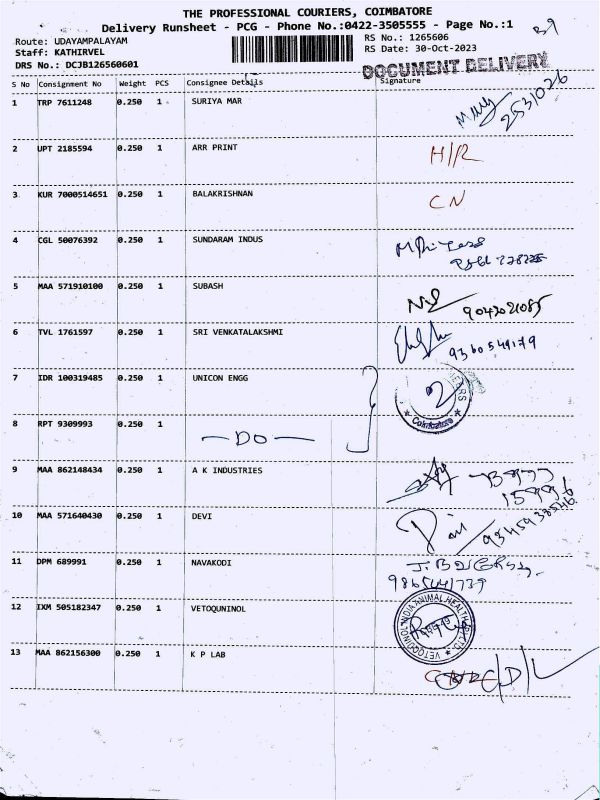 THE PROFESSIONAL COURIERS, COIMBATORE
Delivery Runsheet - PCG - Phone No.:0422-3505555 - Page No.:1
Route: UDAYAMPALAYAM RS No.: 1265606
Staff: KATHIRVEL RS Date: 30-Oct-2023
DRS No.: DCJB126560601 DOCUMENT DELIVERY
S No Consignment No Weight PCS Consignee Details Signature
1 TRP 7611248 0.250 1 SURIYA MAR
2 UPT 2185594 0.250 1 ARR PRINT H/R
3 KUR 7000514651 0.250 1 BALAKRISHNAN CN
4 CGL 50076392 0.250 1 SUNDARAM INDUS
5 MAA 571910100 0.250 1 SUBASH
9043021085
6 TVL 1761597 0.250 1 SRI VENKATALAKSHMI
9360549179
7 IDR 100319485 0.250 1 UNICON ENGG
Coimbatore
8 RPT 9309993 0.250 1
— DO —
9 MAA 862148434 0.250 1 A K INDUSTRIES
10 MAA 571640430 0.250 1 DEVI
11 DPM 689991 0.250 1 NAVAKODI
12 IXM 505182347 0.250 1 VETOQUNINOL
VETOQUINOL INDIA ANIMAL HEALTH
13 MAA 862156300 0.250 1 K P LAB